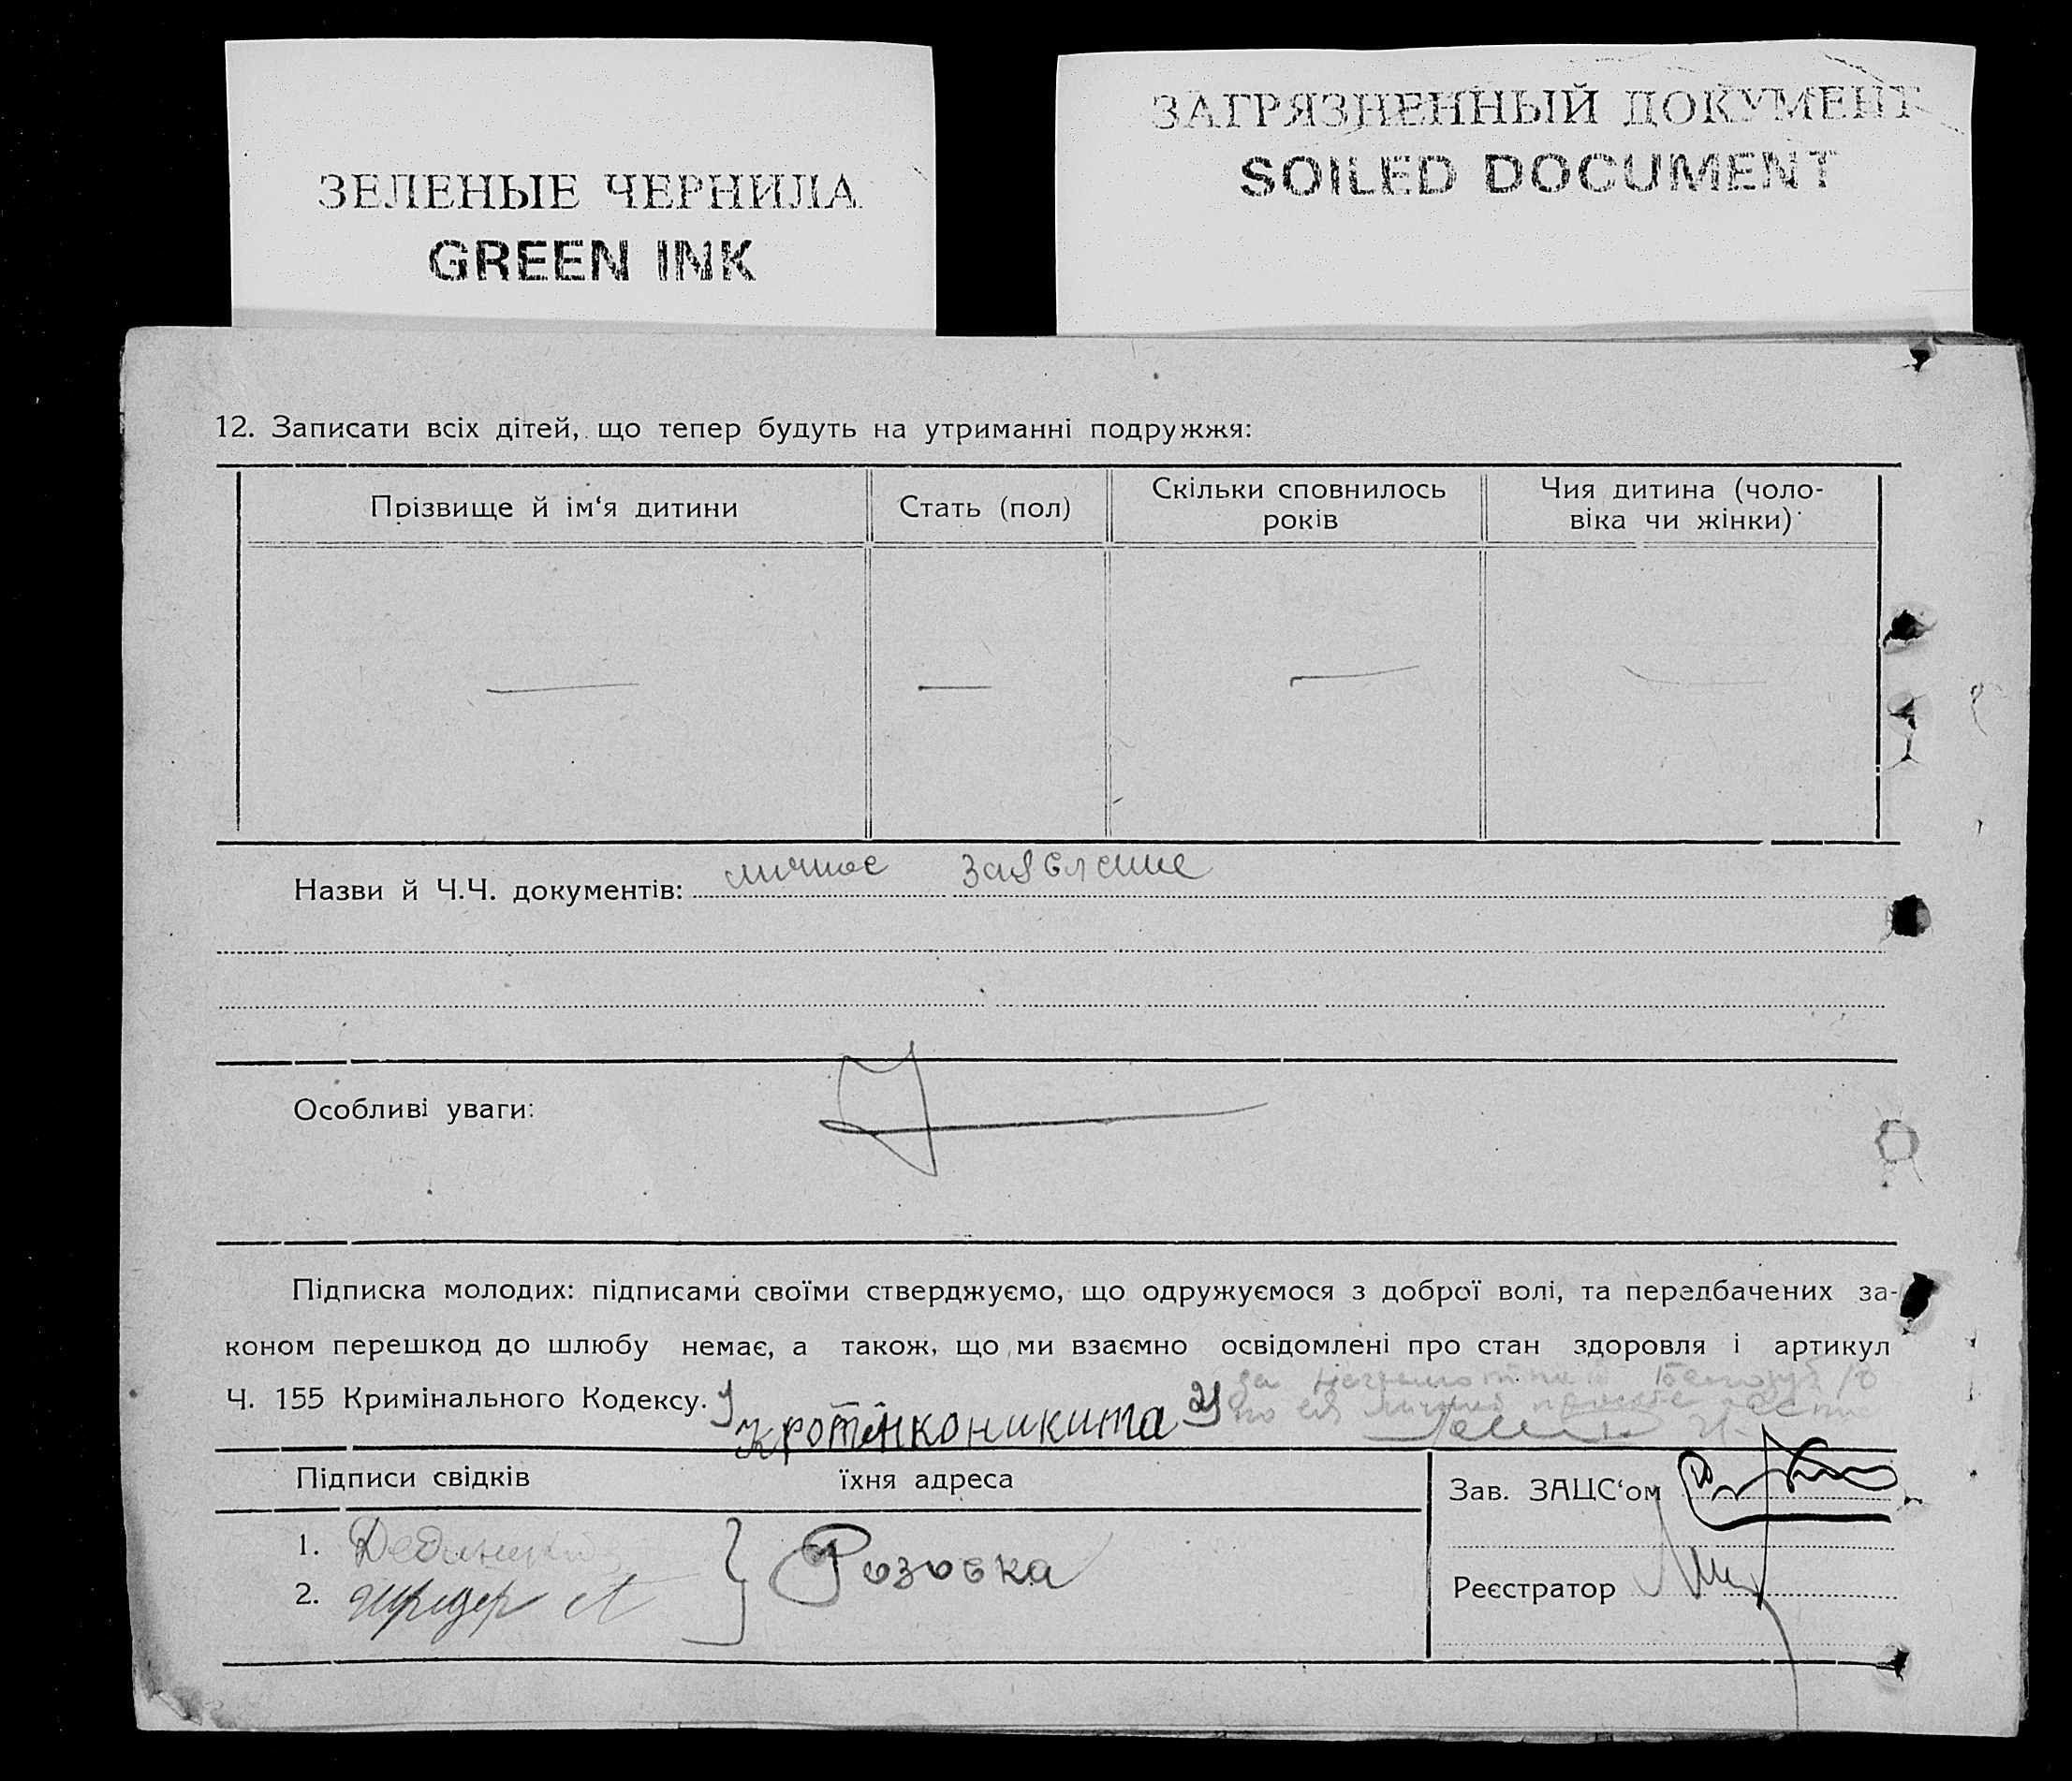 ЗЕЛЕНЫЕ ЧЕРНИЛА
GREEN INK
ЗАГРЯЗНЕННЫЙ ДОКУМЕНТ
SOILED DOCUMENT
12. Записати всіх дітей, що тепер будуть на утриманні подружжя:
Прізвище й ім‘я дитини
Стать (пол)
Скільки сповнилось
років
Чия дитина (чоло-
віка чи жінки)
Назви й Ч.Ч. документів: личное заявление
Особливі уваги:
Підписка молодих: підписами своїми стверджуємо, що одружуємося з доброї волі, та передбачених за-
коном перешкод до шлюбу немає, а також, що ми взаємно освідомлені про стан здоровля і артикул
Ч. 155 Кримінального Кодексу. 1) Кротенко никита 2) за
по ея личной
Підписи свідків їхня адреса
1.
2. Шредер А
Розовка
Зав. ЗАЦС‘ом
Реєстратор